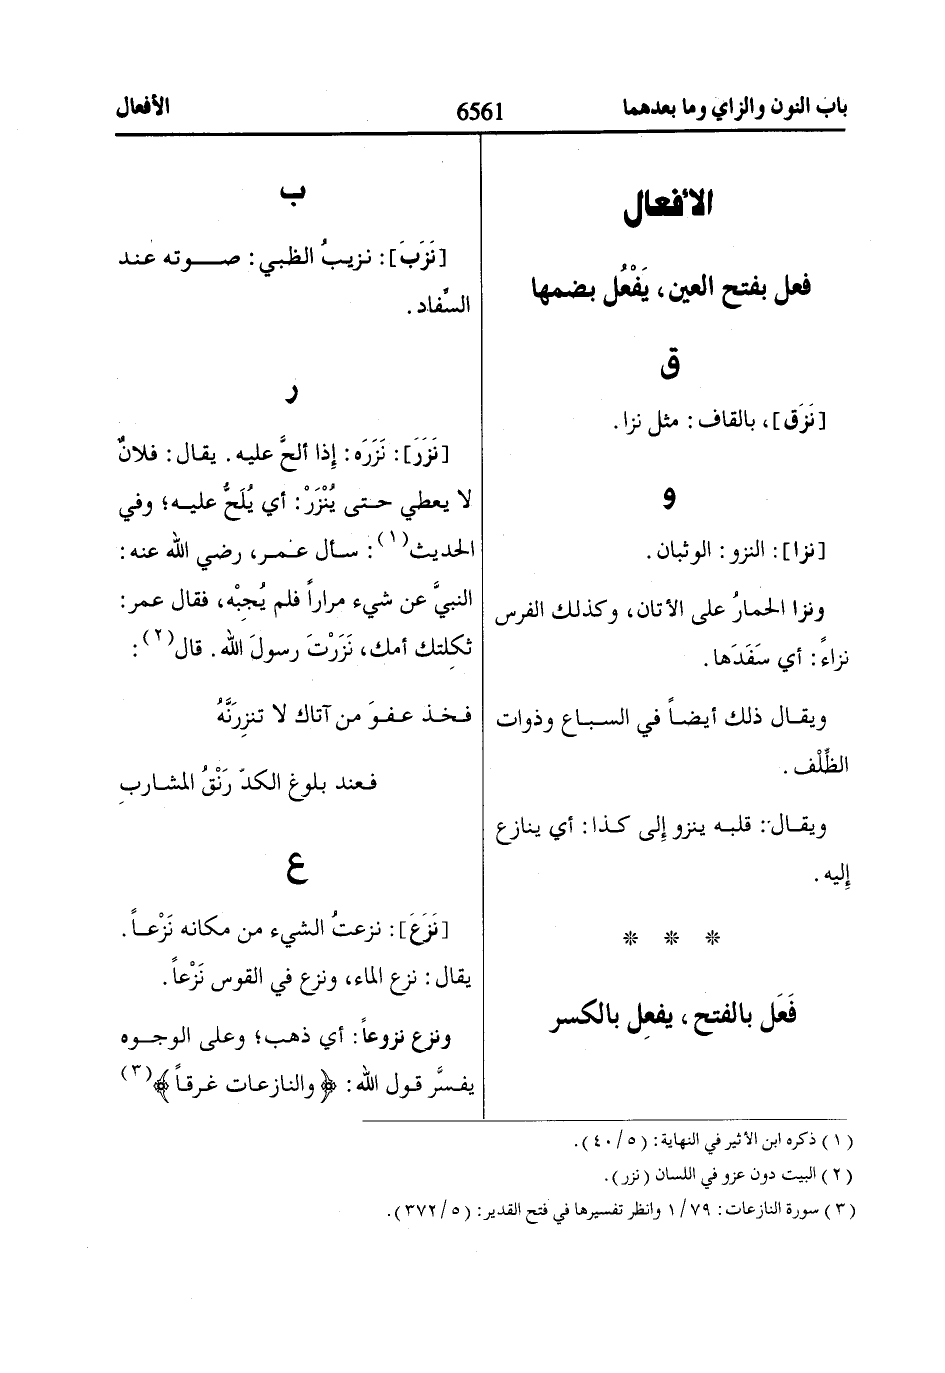 باب النون والزاي وما بعدهما 6561 الأفعال
الأفعال
فعل بفتح العين، يَفْعُل بضمها
ق
[نَزَق]، بالقاف: مثل نزا.
و
[نزا]: النزو: الوثبان.
ونزا الحمارُ على الأتان، وكذلك الفرس
نزاءً: أي سَفَدَها.
ويقال ذلك أيضاً في السباع وذوات
الظِّلْف.
ويقال: قلبه ينزو إلى كذا: أي ينازع
إليه.
* * *
فَعَل بالفتح، يفعِل بالكسر
ب
[نَزَبَ]: نزيبُ الظبي: صوته عند
السِّفاد.
ر
[نَزَرَ]: نَزَرَه: إذا ألحَّ عليه. يقال: فلانٌ
لا يعطي حتى يُنْزَرْ: أي يُلَحُّ عليه؛ وفي
الحديث(١): سأل عمر، رضي الله عنه:
النبيَّ عن شيء مراراً فلم يُجبْه، فقال عمر:
ثكلتك أمك، نَزَرْتَ رسولَ الله. قال(٢):
فخذ عفوَ من آتاك لا تنزِرَنَّهُ
فعند بلوغ الكدّ رَنْقُ المشاربِ
ع
[نَزَعَ]: نزعتُ الشيء من مكانه نَزْعاً.
يقال: نزع الماء، ونزع في القوس نَزْعاً.
ونزع نزوعاً: أي ذهب؛ وعلى الوجوه
يفسَّر قول الله: ﴿والنازعات غرقاً﴾(٣)
(١) ذكره ابن الأثير في النهاية: (٥/٤٠).
(٢) البيت دون عزو في اللسان (نزر).
(٣) سورة النازعات: ١/٧٩ وانظر تفسيرها في فتح القدير: (٥/٣٧٢).